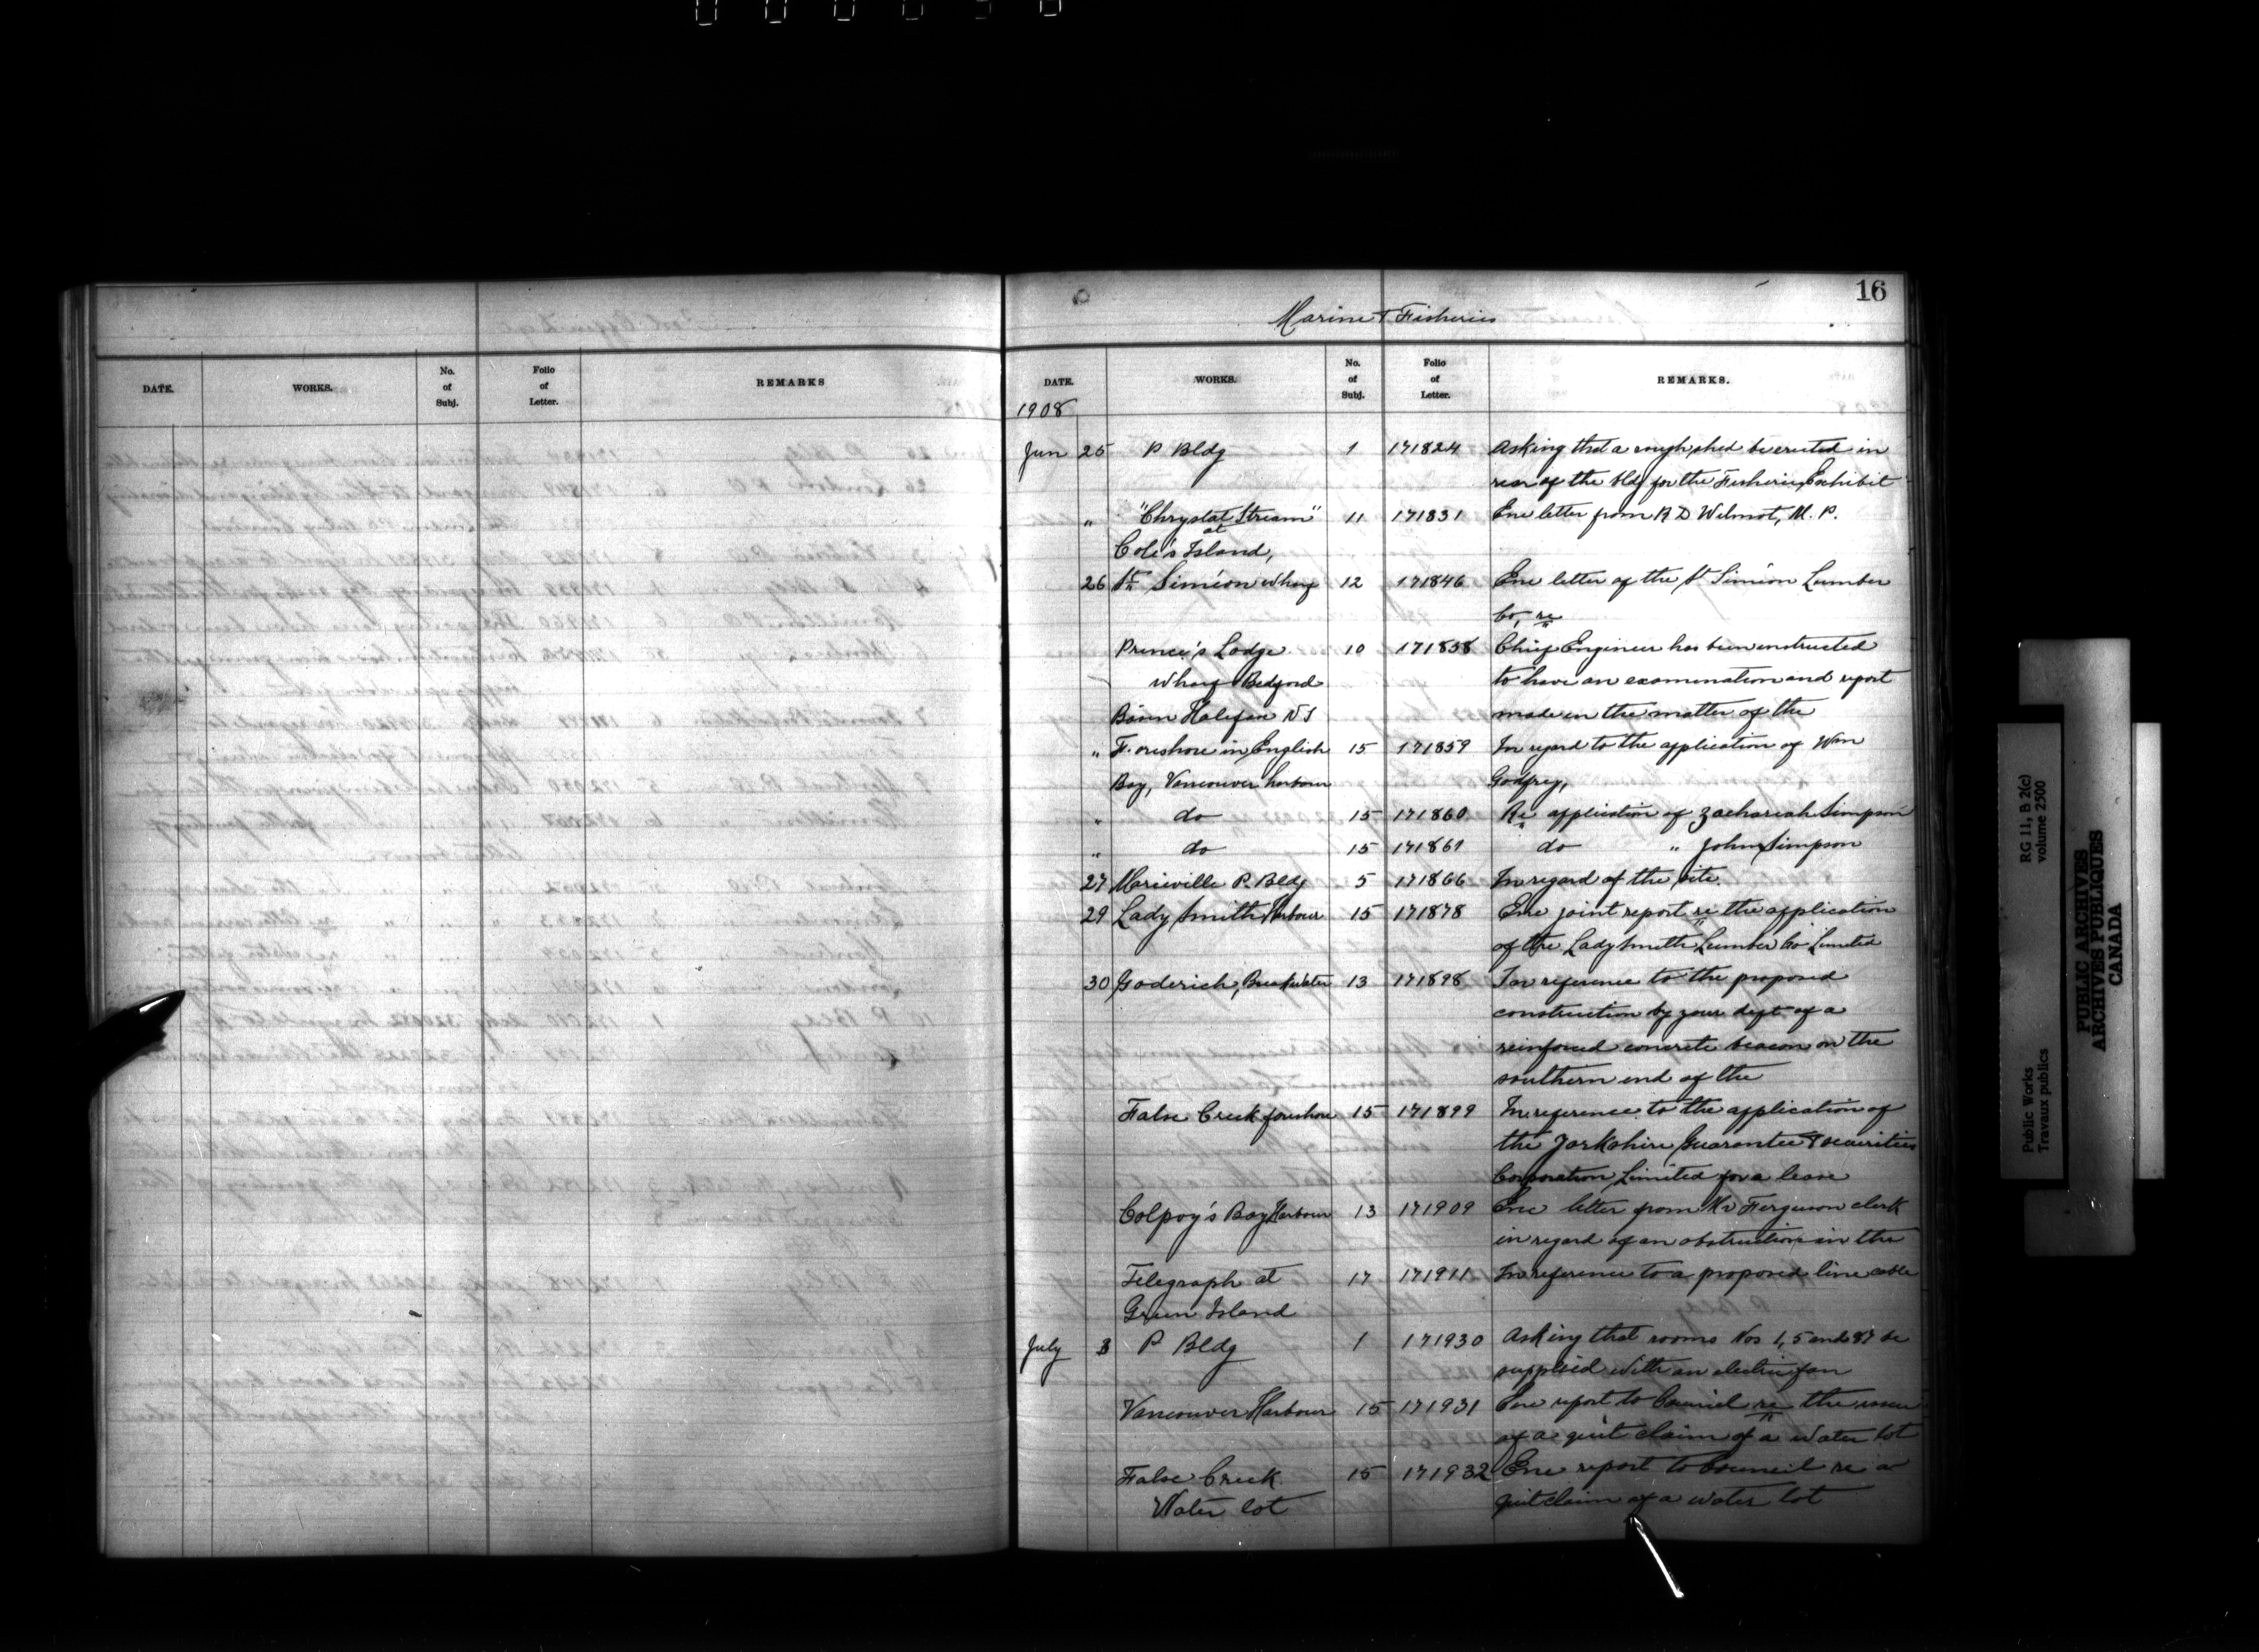 16
Marine & Fisheries
DATE. WORKS. No. of Subj. Folio of Letter. REMARKS
DATE. WORKS. No. of Subj. Folio of Letter. REMARKS.
1908
Jun 25 P Bldg 1 171824 Asking that a rough shed be erected in
rear of the bldg for the Fisheries Exhibit
" "Chrystal Stream" 11 171831 Enc letter from R D Wilmot, M. P.
at
Cole's Island,
26 St Siméon Wharf 12 171846 Enc letter of the St Siméon Lumber
Co, re
Prince's Lodge 10 171858 Chief Engineer has been instructed
Wharf Bedford to have an examination and report
Basin Halifax NS made in the matter of the
" Foreshore in English 15 171859 In regard to the application of Wm
Bay, Vancouver harbour Godfrey,
" do 15 171860 Re application of Zachariah Simpson
" do 15 171861 do " John Simpson
27 Marieville P. Bldg 5 171866 In regard of the site.
29 Lady Smith Harbour 15 171878 Enc joint report re the application
of the Lady Smith Lumber Co Limited
30 Goderich, Breakwater 13 171898 In reference to the proposed
construction by your dept of a
reinforced concrete beacon on the
southern end of the
False Creek foreshore 15 171899 In reference to the application of
the Yorkshire Guarantee & Securities
Corporation Limited for a lease
Colpoy's Bay Harbour 13 171909 Enc letter from Mr Ferguson clerk
in regard of an obstruction in the
Telegraph at 17 171911 In reference to a proposed line cable
Green Island
July 3 P Bldg 1 171930 Asking that rooms Nos 1, 5 and 87 be
supplied with an electric fan
Vancouver Harbour 15 171931 Enc report to Council re the issue
of a quit claim of a water lot
False Creek 15 171932 Enc report to Council re a
Water lot quit claim of a water lot
Public Works RG 11, B 2(c)
Travaux publics volume 2500
PUBLIC ARCHIVES
ARCHIVES PUBLIQUES
CANADA